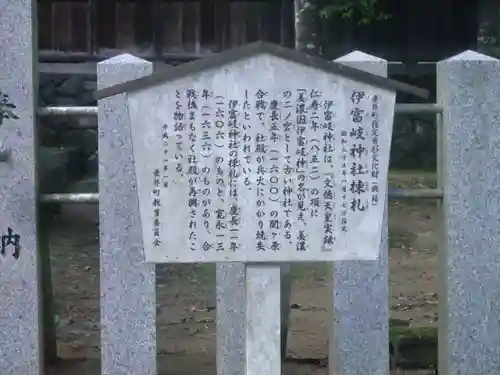 垂井町指定有形文化財(典籍)
伊富岐神社棟札
昭和三十三年八月十七日指定
伊富岐神社は、『文徳天皇実録』
仁寿二年(八五二)の項に
「美濃国伊富岐神」の名が見え、美濃
の二ノ宮として古い神社である。
慶長五年(一六〇〇)の関ヶ原
合戦で、社殿が兵火にかかり焼失
したといわれている。
伊富岐神社の棟札には、慶長一一年
(一六〇六)のものと、寛永一三
年(一六三六)のものがあり、合
戦後まもなく社殿が再興されたこ
とを物語っている。
平成二十一年
垂井町教育委員会
奉
納